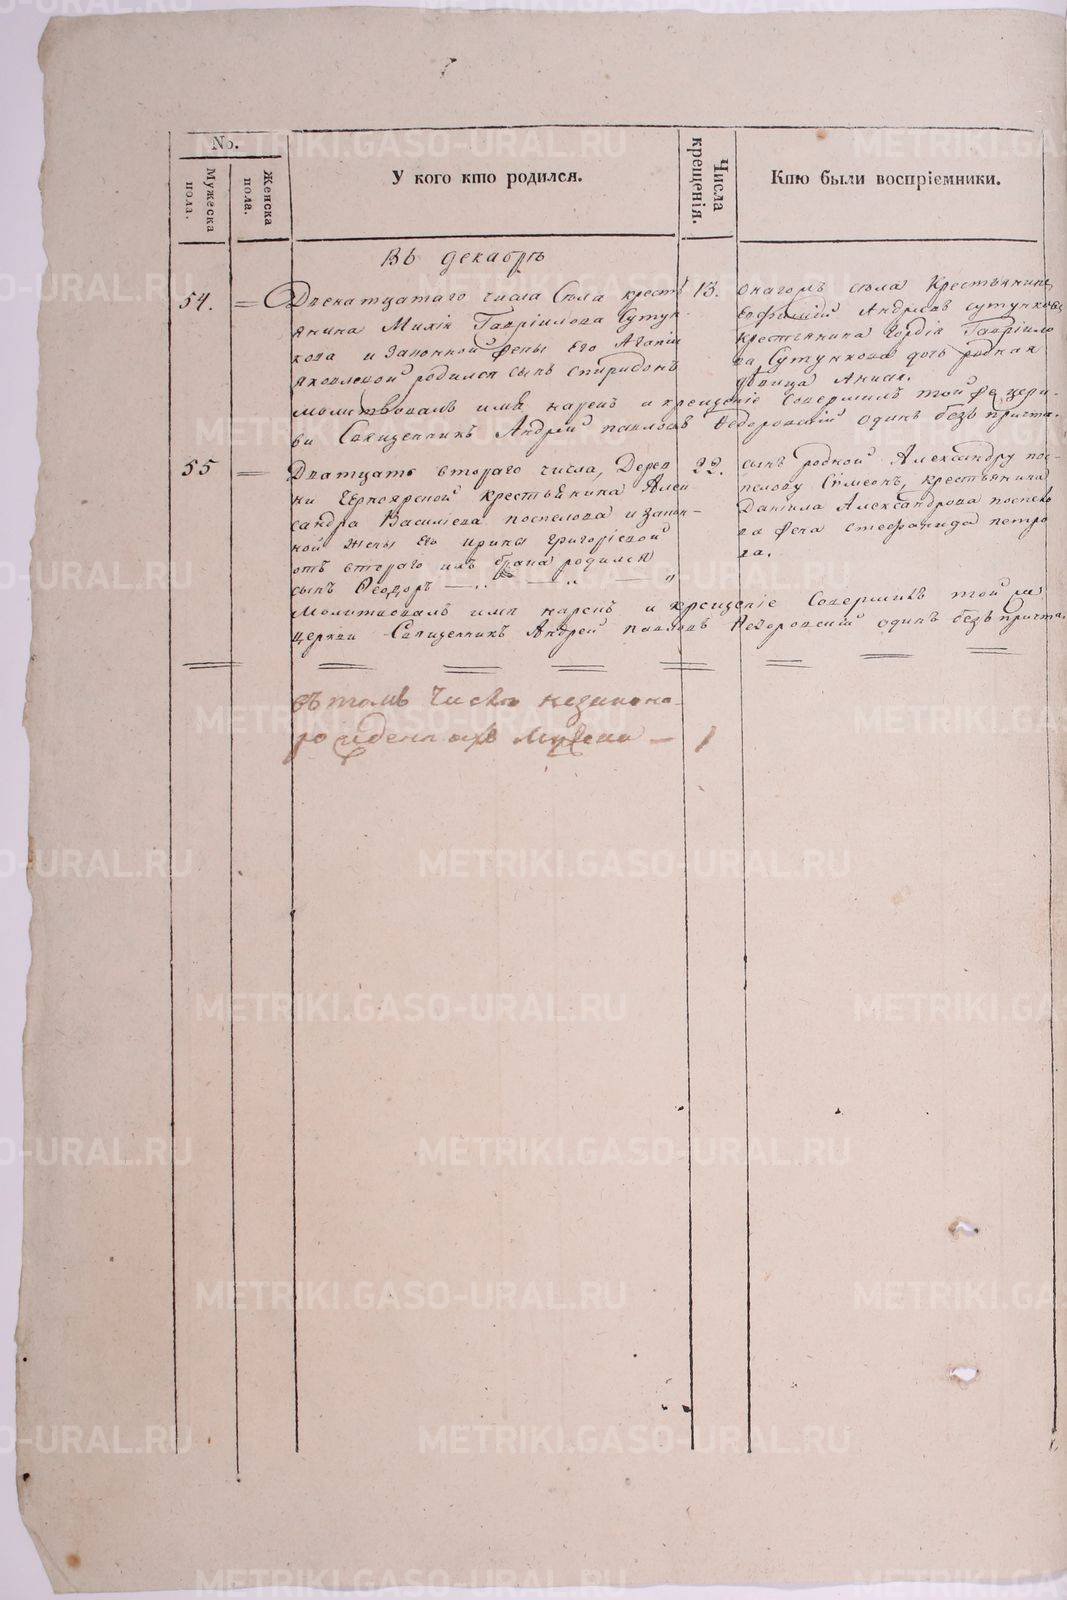 No.
Мужеска пола.
Женска пола.
У кого кто родился.
Числа крещенія.
Кто были воспріемники.
Въ декабрѣ
54. = Двенатцатаго числа Села кресть
янина Михія Гавріилова Сутун-
кова и Законной жены Его Агапіи
Яковлевой родился сынъ Спиридонъ
13. Онагожъ села Крестьянинъ
Евфимій Андреевъ Сутунковъ
крестьянина Гордія Гавріило
ва Сутункова дочь родная
девица Анисія.
молитвовалъ имя нарекъ и крещеніе Совершилъ той же церк-
ви Священникъ Андрей Павловъ Ѳедоровскій одинъ безъ причта.
55 = Дватцать втораго числа, Дерев
ни Черноярской крестьянина Алек
сандра Василіева Поспелова и закон-
ной жены Его Ирины Григоріевой
отъ втораго имъ брака родился
сынъ Ѳеодоръ
22. сынъ родной Александру пос-
пелову Симеонъ, крестьянина
Даніила Александрова поспело
ва жена Стефанида Петро
ва.
Молитвовалъ имя нарекъ и крещеніе Совершилъ той же
церкви Священникъ Андрей Павловъ Ѳедоровскій одинъ безъ причта.
въ томъ числѣ незаконно-
рожденныхъ мужска — 1
METRIKI.GASO-URAL.RU